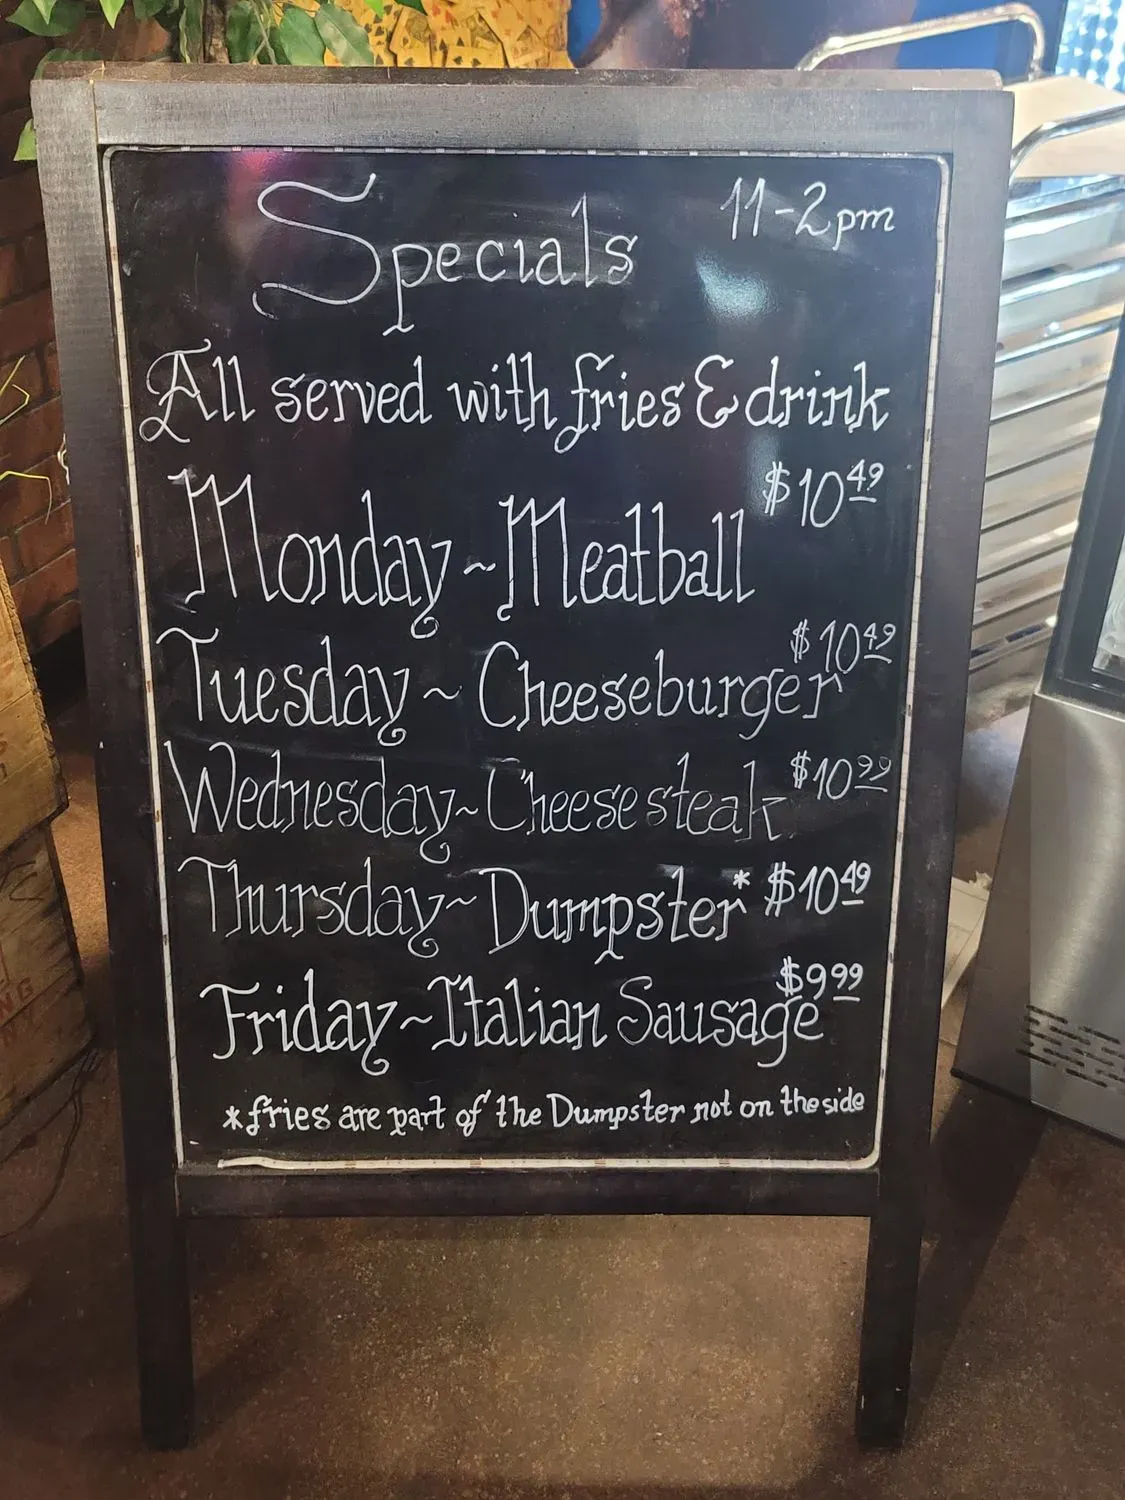 Specials 11-2pm
All served with fries & drink
Monday ~ Meatball $10.49
Tuesday ~ Cheeseburger $10.49
Wednesday ~ Cheesesteak $10.99
Thursday ~ Dumpster* $10.49
Friday ~ Italian Sausage $9.99
*fries are part of the Dumpster not on the side